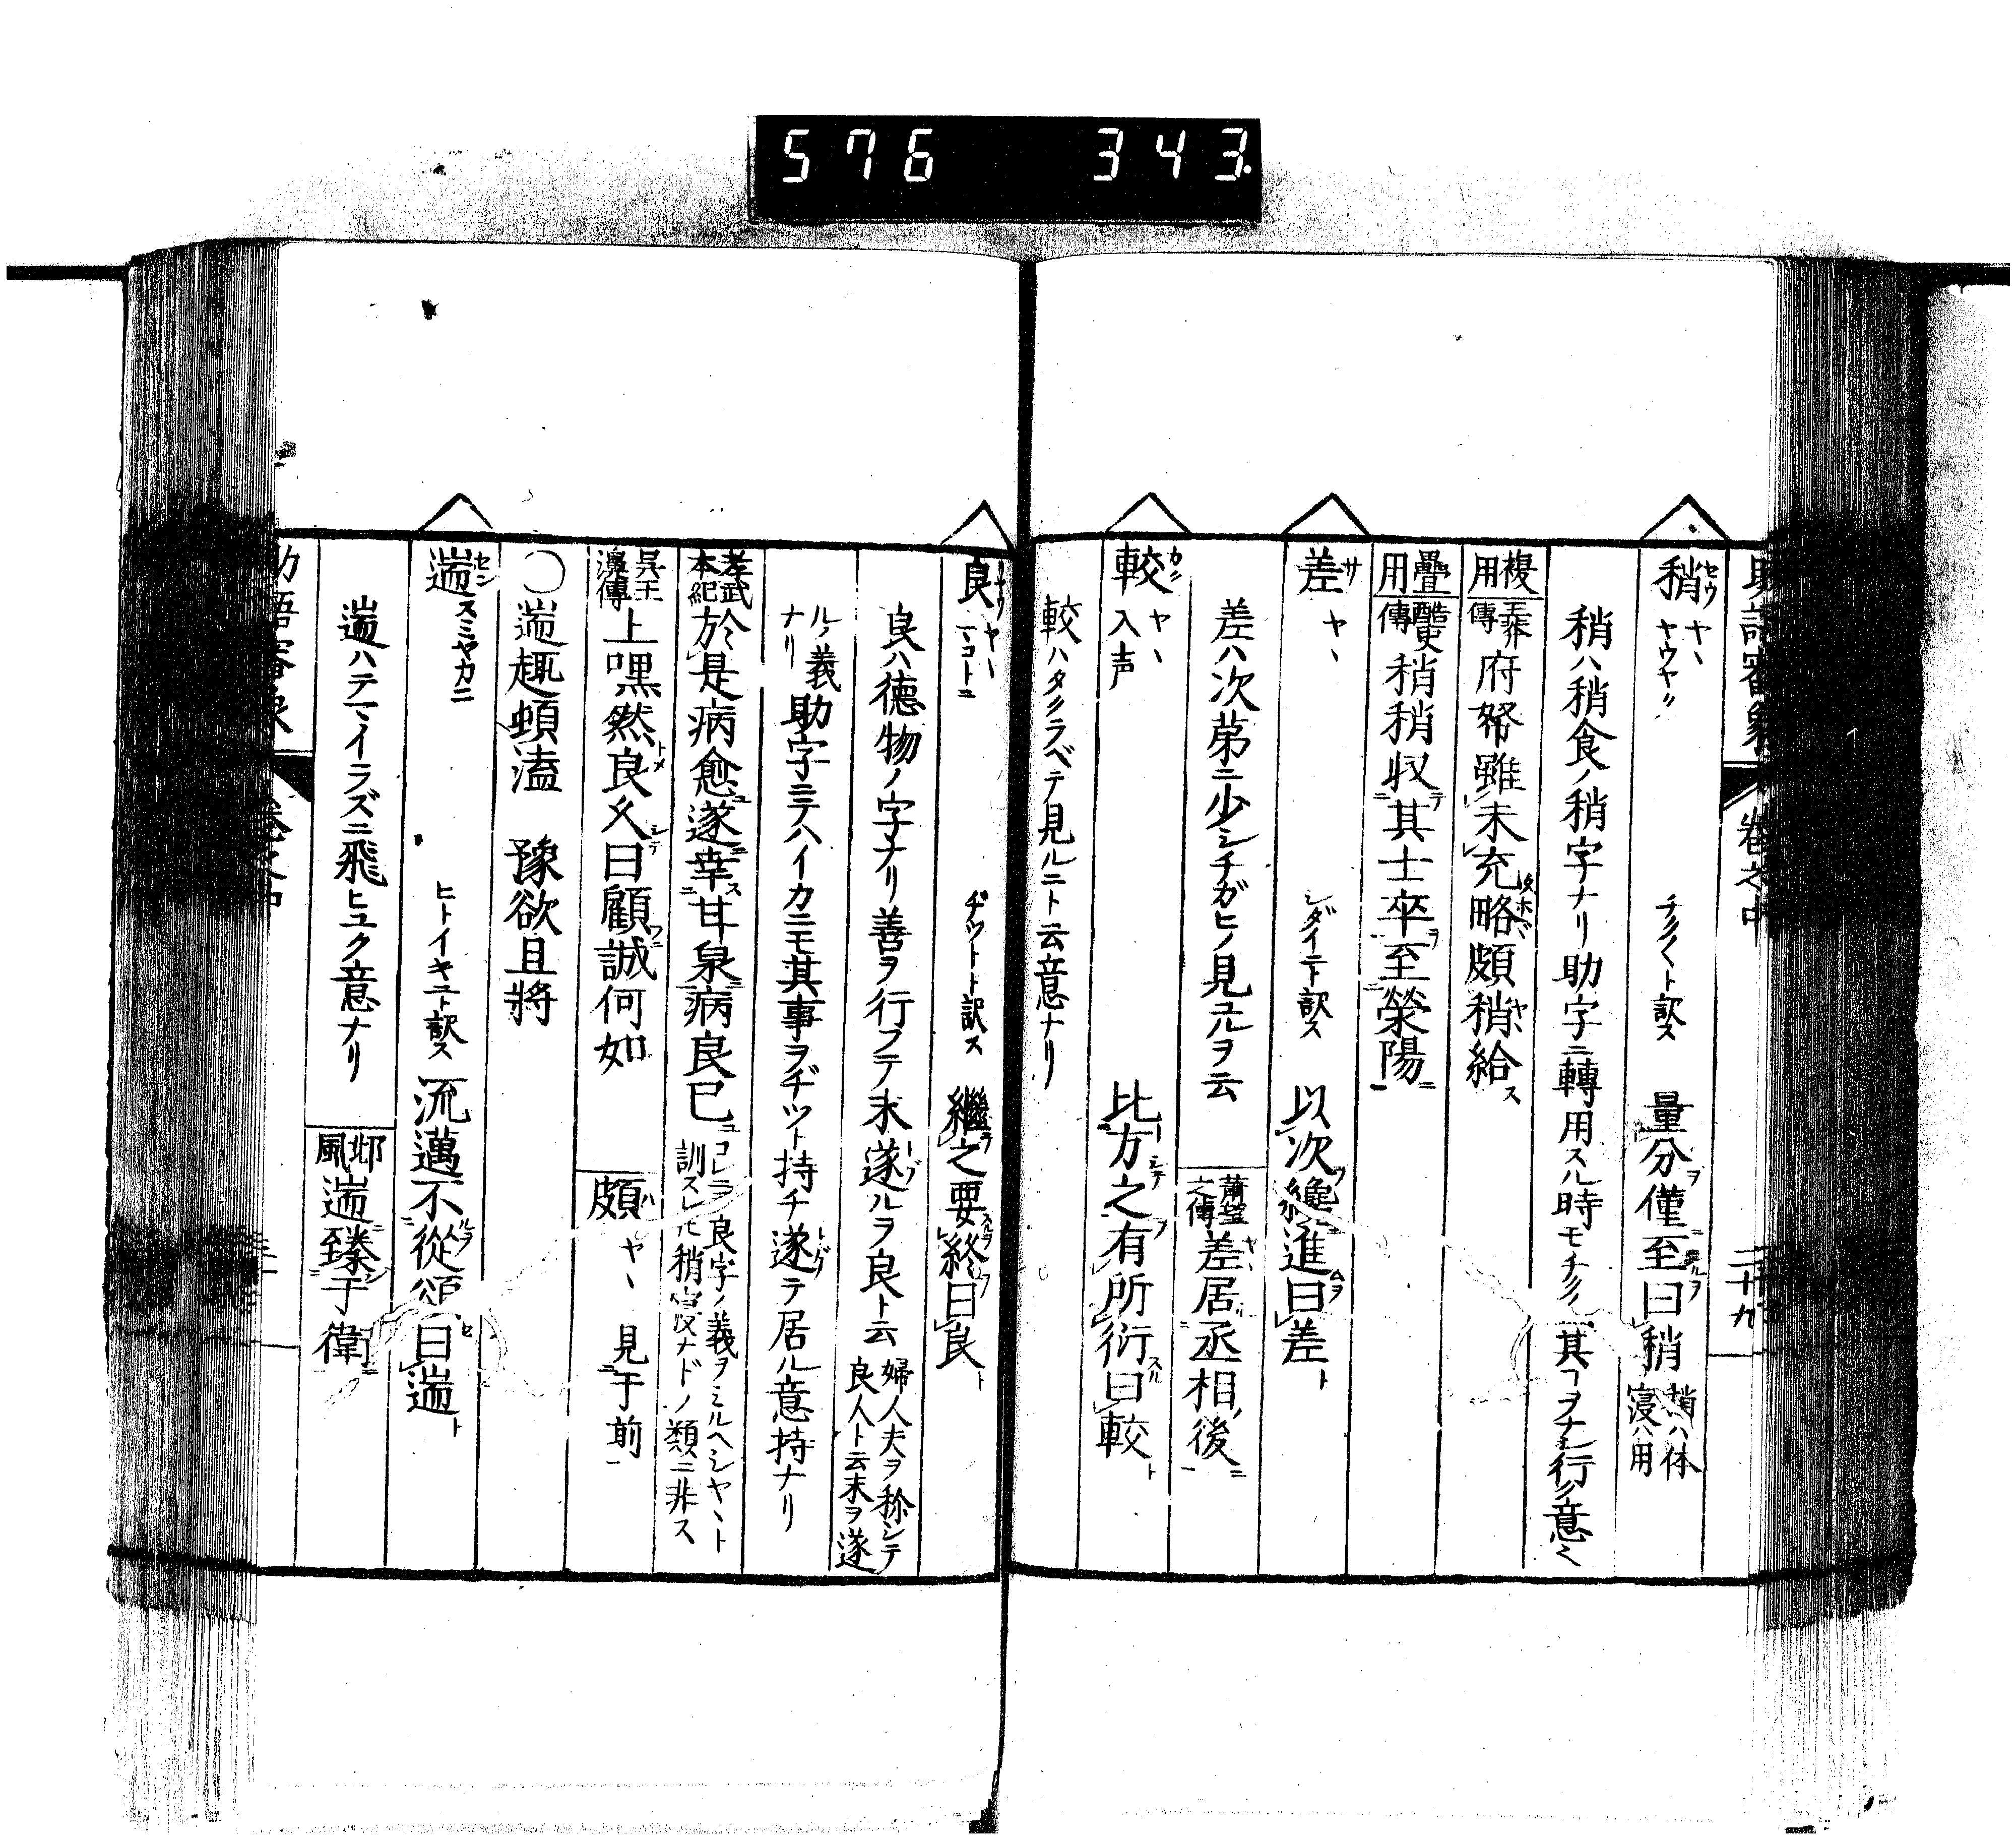 576 343
助語審象 卷之中 二十九
稍 セウ ヤヽ ヤウヤク チク〱ト訳ス 量分僅至曰稍 稍ハ体 寖ハ用
稍ハ稍食ノ稍字ナリ助字ニ轉用スル時モチク〱其ヿヲナシ行ク意也
複用 王莽傳 府帑雖未充略頗稍給ス
疊用 酷吏傳 稍稍収其士卒至滎陽
差 サ ヤヽ シダイニト訳ス 以次纔進曰差
差ハ次第ニ少シチガヒノ見ユルヲ云 蕭望之傳 差居丞相後
較 カク ヤヽ 入声 比方之有所衍曰較
較ハタクラベテ見ルニト云意ナリ
良 リヤウ ヤヽ マコトニ ヂツトト訳ス 繼之要終曰良
良ハ徳物ノ字ナリ善ヲ行フテ末遂ルヲ良ト云 婦人夫ヲ称シテ良人ト云末ヲ遂
ルノ義ナリ 助字ニテハイカニモ其事ヲヂツト持チ遂テ居ル意持ナリ
孝武本紀 於是病愈遂幸甘泉病良已 コレヲ良字ノ義ヲミルヘシヤヽト訓スレ𪜈稍寖ナドノ類ニ非ス
吳王濞傳 上嘿然良久曰顧誠何如 頗 ヤヽ 見于前
〇遄趣頓溘 豫欲且將
遄 セン スミヤカニ ヒトイキニト訳ス 流邁不從頌曰遄
遄ハテマイラズニ飛ヒユク意ナリ 邶風 遄臻于衛
助語審象 卷之中